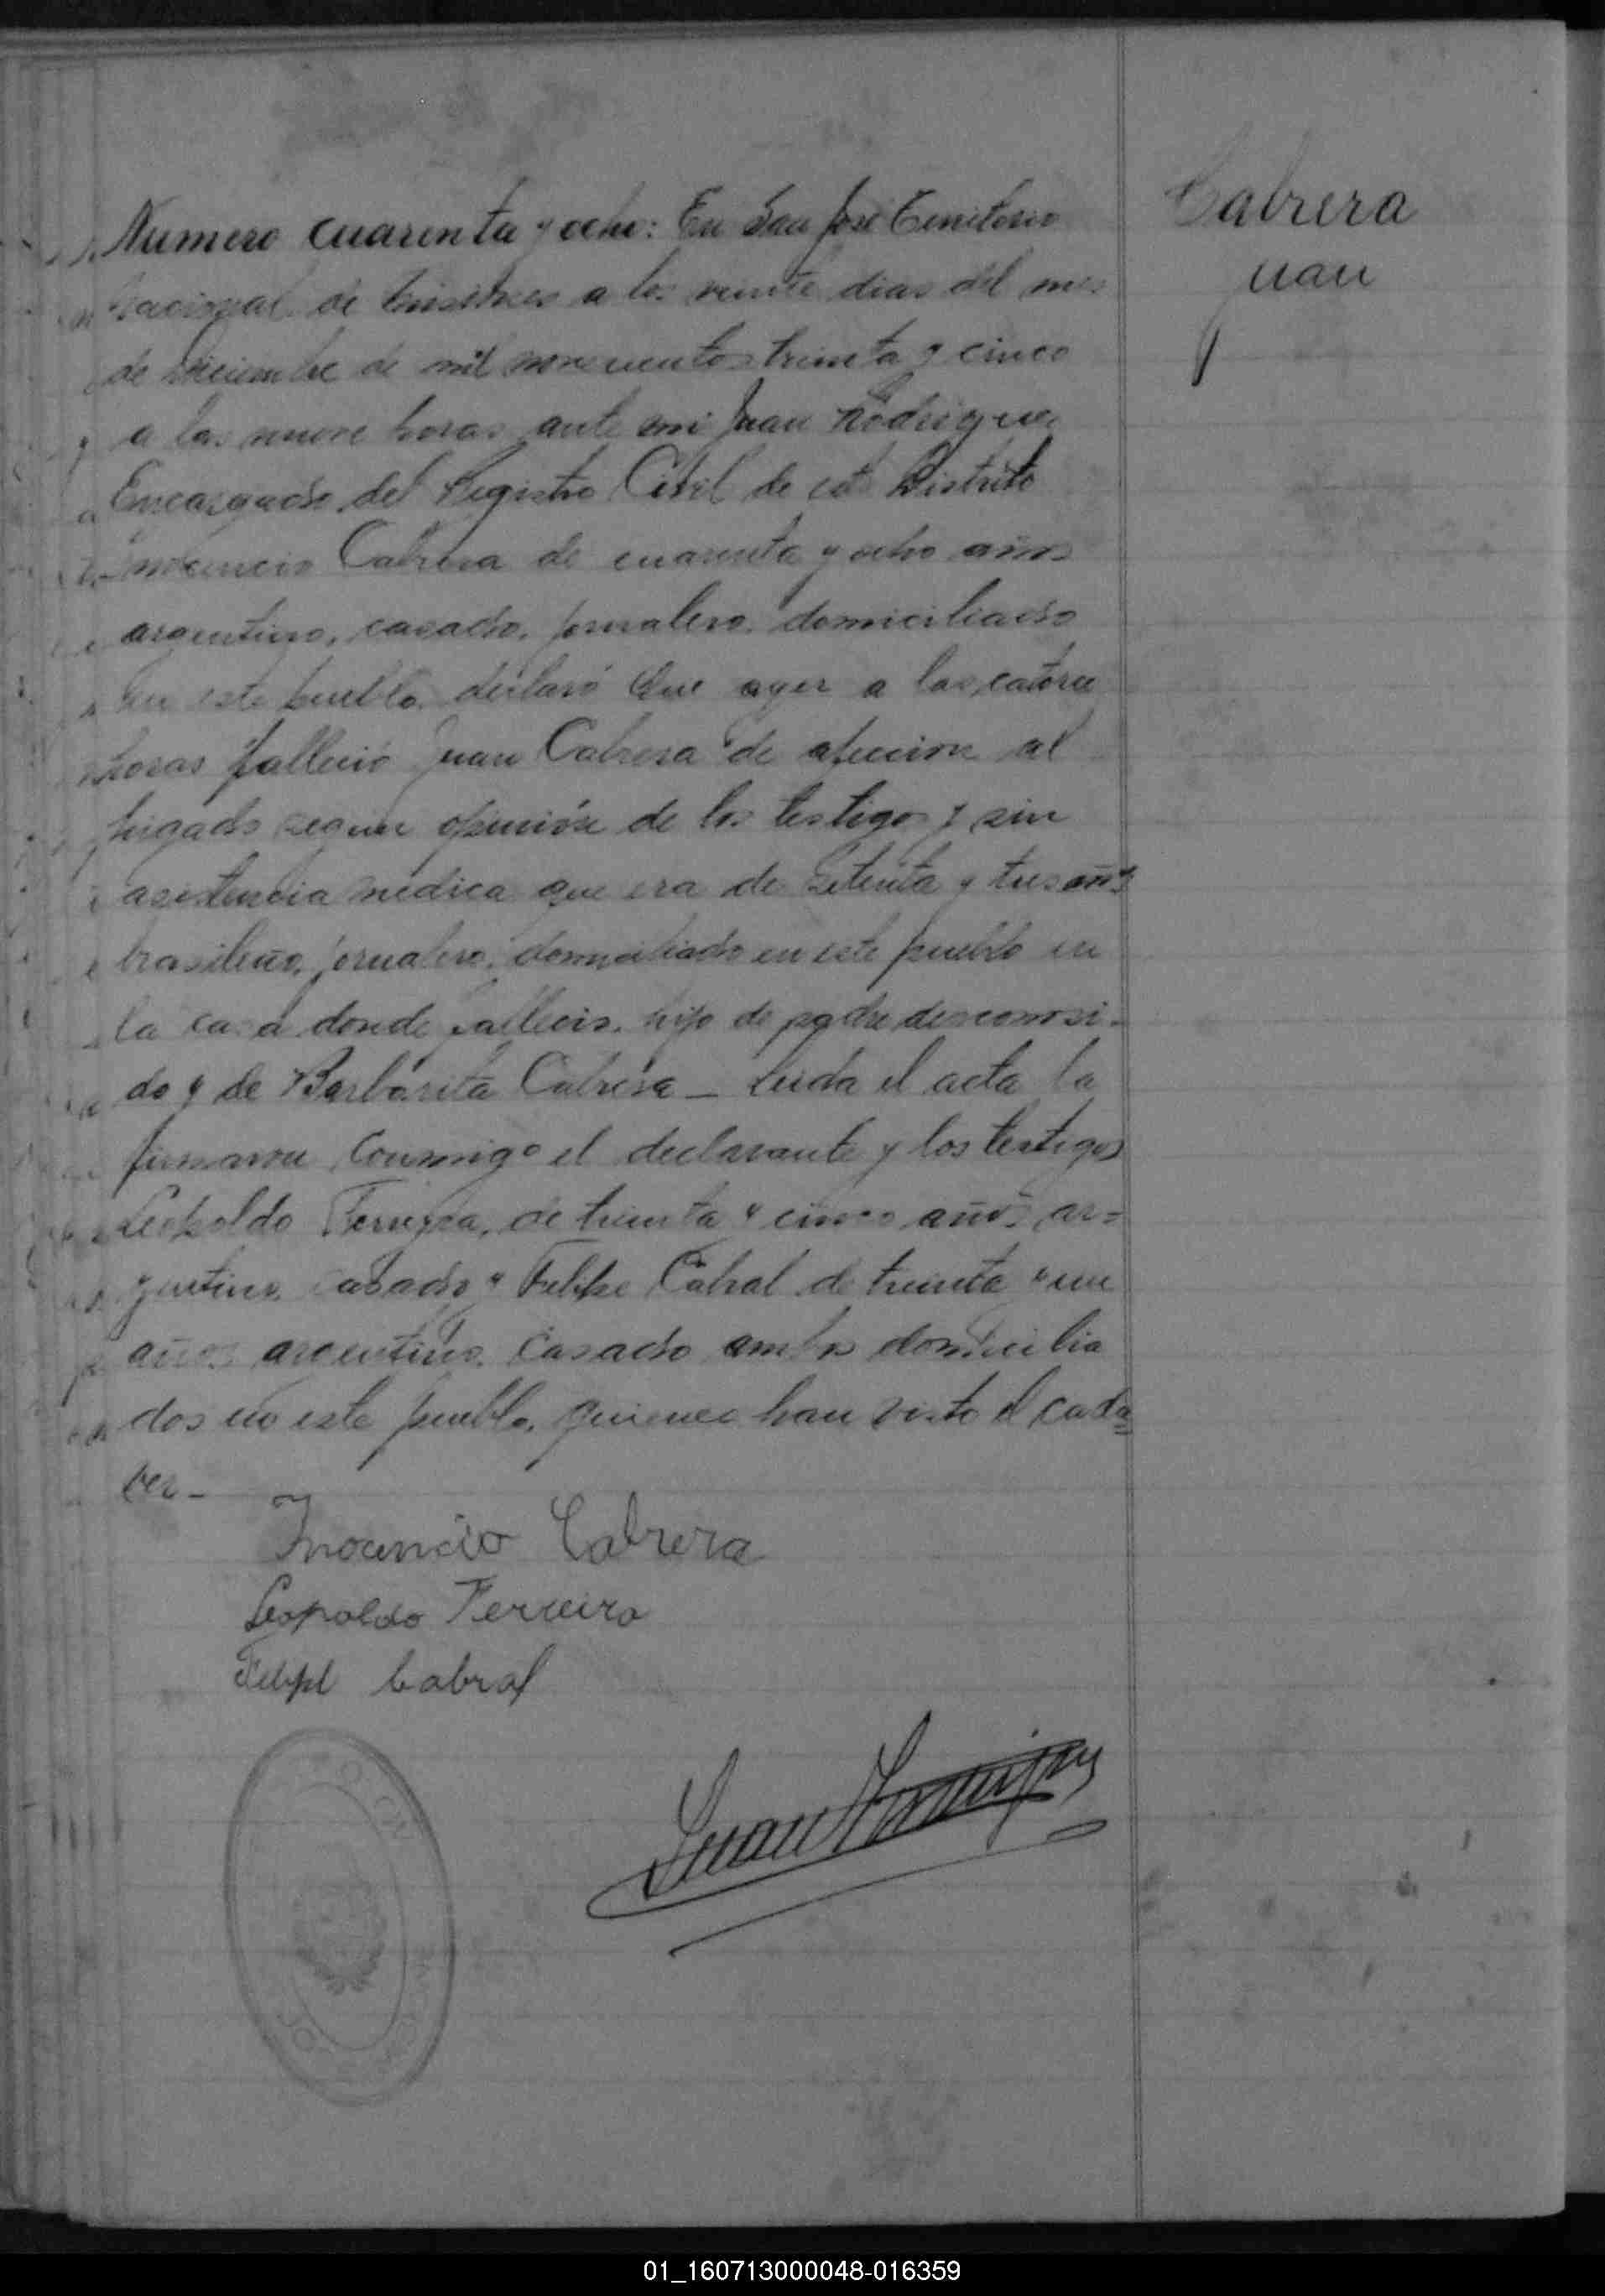 Numero cuarenta y ocho: En San José Territorio
Nacional de Misiones a los veinte dias del mes
de Diciembre de mil novecientos treinta y cinco
a las nueve horas ante mi Juan Rodriguez
Encargado del Registro Civil de este Distrito
Inocencio Cabrera de cuarenta y ocho años
argentino, casado, jornalero, domiciliado
en este pueblo, declaró Que ayer a las catorce
horas falleció Juan Cabrera de afección al
higado segun opinión de los testigos y sin
asistencia medica que era de setenta y tres años
brasileño, jornalero, domiciliado en este pueblo en
la casa donde falleció, hijo de padre desconosi-
do y de Barbarita Cabrera - Leida el acta la
firmaron conmigo el declarante y los testigos
Leopoldo Ferreyra, de treinta y cinco años ar=
gentino, casado y Felipe Cabral de treinta y un
años argentino, casado ambos domicilia
dos en este pueblo, quienes han visto el cada=
ver-
Inocencio Cabrera
Leopoldo Ferreira
Felipe Cabral
Juan Rodriguez
Cabrera
Juan
01_160713000048-016359